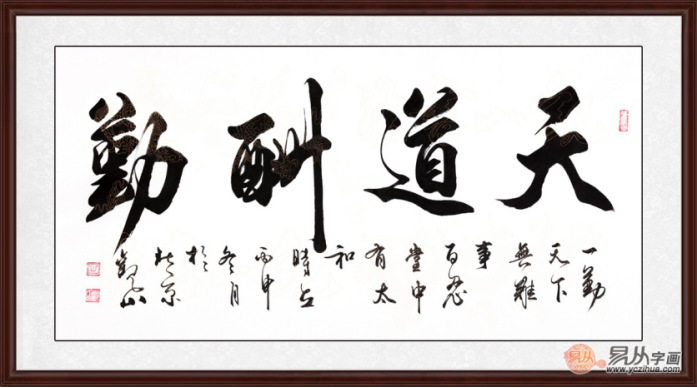 天道酬勤
一勤
天下
無難
事
百忍
堂中
有太
和
時在
丙申
冬月
於
北京
易从字画
www.yczihua.com